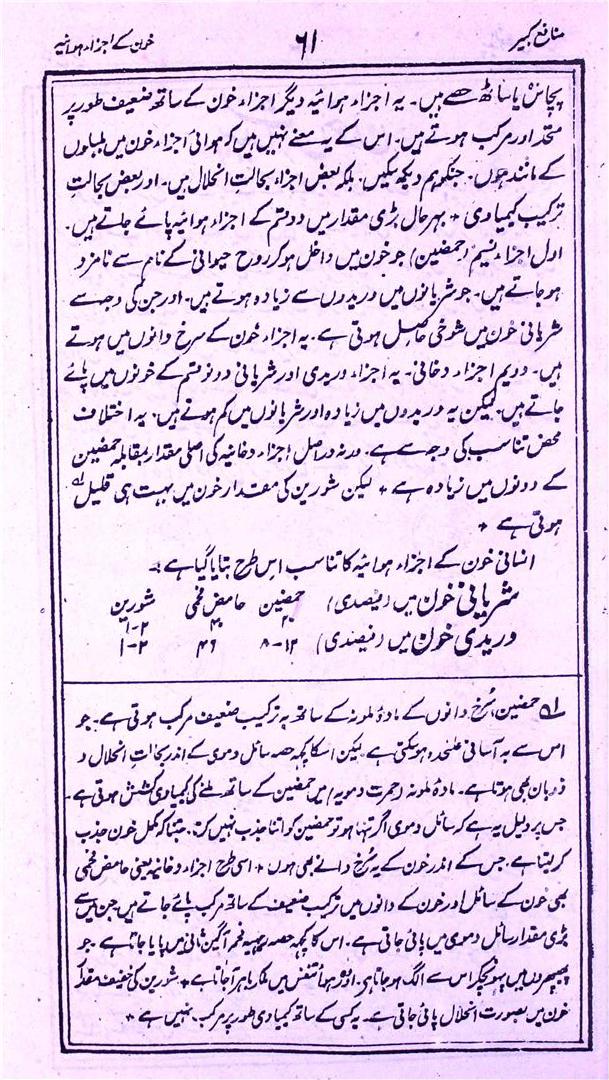 منافع کبیر
۶۱
خون کے اجزاء ہوائیہ
پچاس یا ساٹھ حصے ہیں۔ یہ اجزاء ہوائیہ دیگر اجزاء خون کے ساتھ ضعیف طور پر
متحد اور مرکب ہوتے ہیں۔ اس کے یہ معنے نہیں ہیں کہ ہوائی اجزاء خون میں بلبلوں
کے مانند ہوں۔ جنکو ہم دیکھ سکیں۔ بلکہ بعض اجزاء بحالتِ انحلال ہیں۔ اور بعض بحالتِ
ترکیب کیمیاوی + بہرحال بڑی مقدار میں دو قسم کے اجزاء ہوائیہ پائے جاتے ہیں۔
اول اجزاء نسیم (حمضین) جو خون میں داخل ہو کر روح حیوانی کے نام سے نامزد
ہو جاتے ہیں۔ جو شریانوں میں وریدوں سے زیادہ ہوتے ہیں۔ اور جن کی وجہ سے
شریانی خون میں شوخی حاصل ہوتی ہے۔ یہ اجزاء خون کے سرخ دانوں میں ہوتے
ہیں۔ دویم اجزاء دخانی۔ یہ اجزاء وریدی اور شریانی دونو قسم کے خونوں میں پائے
جاتے ہیں۔ لیکن یہ وریدوں میں زیادہ اور شریانوں میں کم ہوتے ہیں۔ یہ اختلاف
محض تناسب کی وجہ سے ہے۔ ورنہ دراصل اجزاء دخانیہ کی اصلی مقدار بمقابلہ حمضین
کے دونوں میں زیادہ ہے + لیکن شورین کی مقدار خون میں بہت ہی قلیل
ہوتی ہے +
انسانی خون کے اجزاء ہوائیہ کا تناسب اس طرح بتایا گیا ہے:-
شریانی خون میں (فیصدی) حمضین ۲۰ حامض فحمی ۴۰ شورین ۱-۲
وریدی خون میں (فیصدی) ۸-۱۲ ۴۶ ۱-۲
لہ حمضین، سُرخ دانوں کے مادۂ ملونہ کے ساتھ بہ ترکیب ضعیف مرکب ہوتی ہے۔ جو
اس سے بہ آسانی علٰحدہ ہو سکتی ہے۔ لیکن اسکا کچھ حصہ سائل دموی کے اندر بحالتِ انحلال و
ذوبان بھی ہوتا ہے۔ مادۂ ملونہ (حمرت دمویہ) میں حمضین کے ساتھ ملنے کی کیمیاوی کشش ہوتی ہے۔
جس پر دلیل یہ ہے کہ سائل دموی اگر تنہا ہو تو حمضین کو اتنا جذب نہیں کرتا۔ جتنا کہ مکمل خون جذب
کر لیتا ہے۔ جس کے اندر خون کے یہ سُرخ دانے بھی ہوں + اسی طرح اجزاء دخانیہ یعنی حامض فحمی
بھی خون کے سائل اور خون کے دانوں میں ترکیب ضعیف کے ساتھ مرکب پائے جاتے ہیں جن میں سے
بڑی مقدار سائل دموی میں پائی جاتی ہے۔ اس کا کچھ حصہ فحم آگین ثانی میں پایا جاتا ہے۔ جو
پھیپھڑوں میں پہونچکر اس سے الگ ہو جاتا ہے۔ اور ہواء تنفس میں ملکر باہر آجاتا ہے + شورین کی خفیف مقدار
خون میں بصورت انحلال پائی جاتی ہے۔ یہ کسی کے ساتھ کیمیاوی طور پر مرکب نہیں ہے +